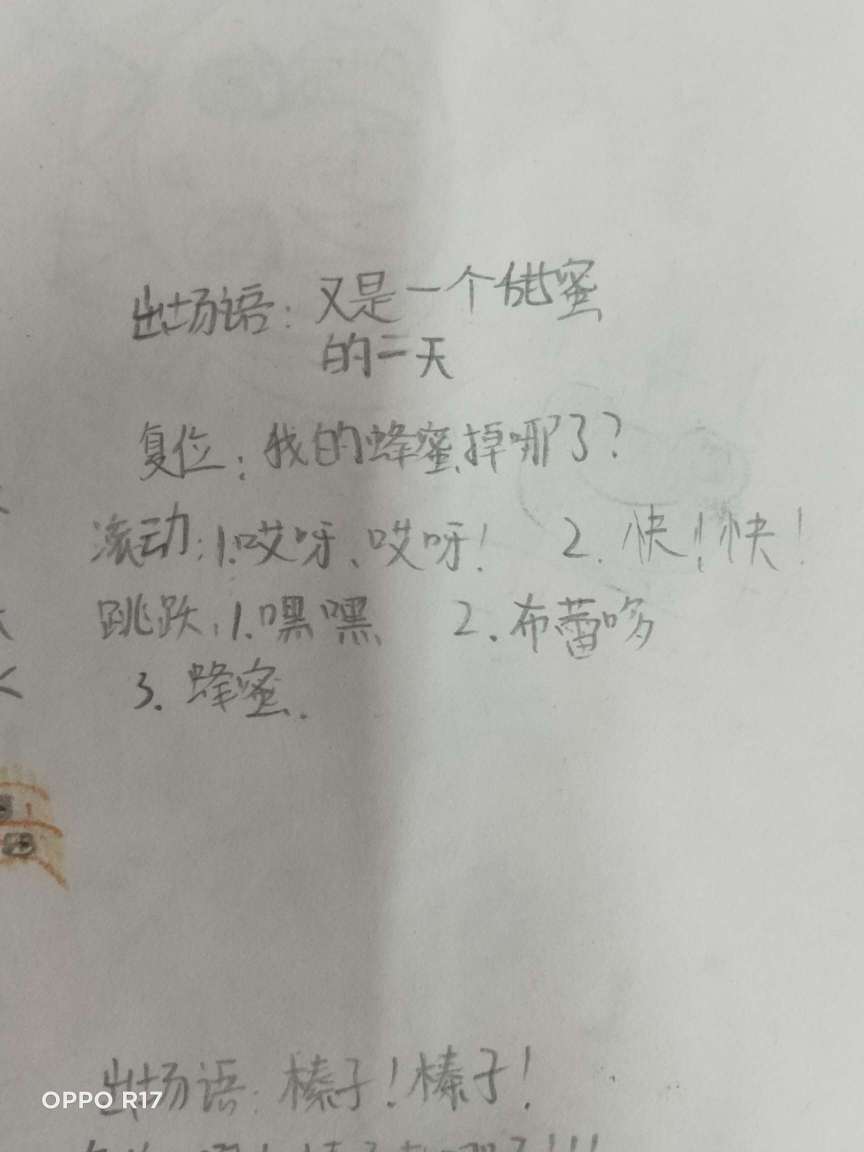 出场语：又是一个甜蜜
的一天
复位：我的蜂蜜掉哪了？
滚动：1.哎呀、哎呀！ 2.快！快！
跳跃：1.嘿嘿 2.布蕾哆
3.蜂蜜.
出场语：榛子！榛子！
OPPO R17